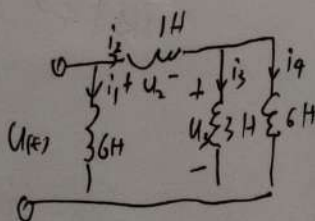 1H
i₂
i₁ + u₂ - + i₃ i₄
u(t) 6H u₃ 3H 6H
-